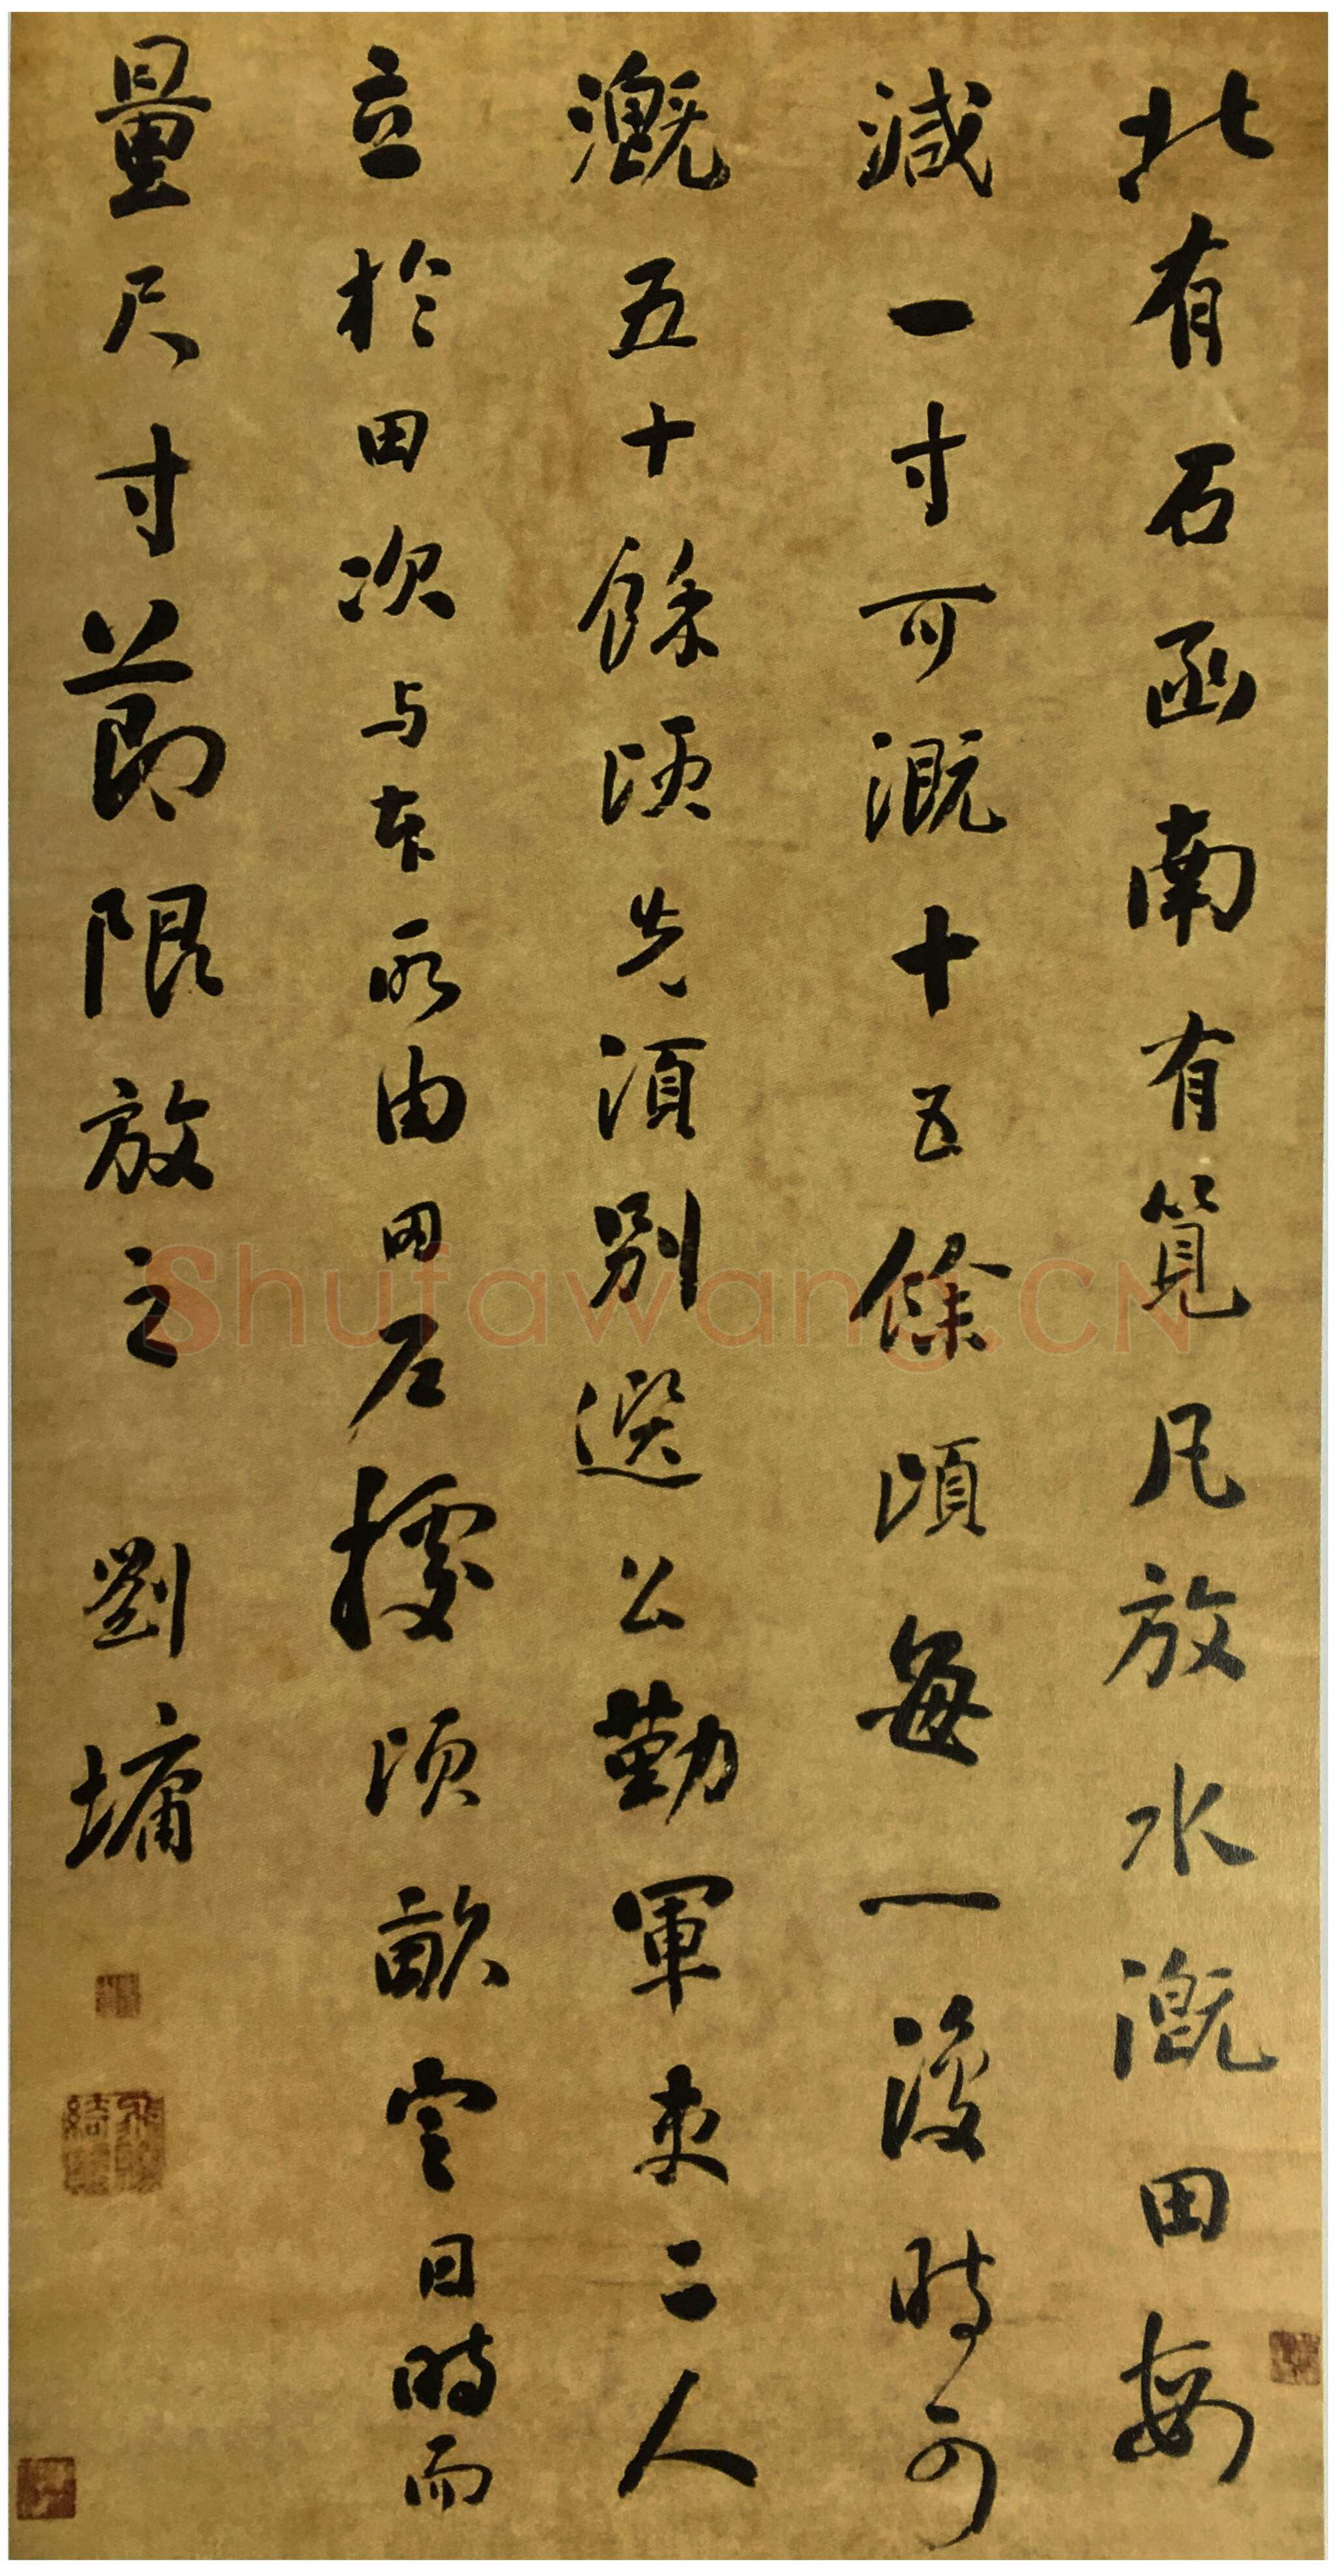 北有石函南有筧凡放水溉田每
減一寸可溉十五餘頃每一復時可
溉五十餘頃先須別選公勤軍吏二人
立於田次与本所由田戶據頃畝定日時而
量尺寸節限放之 劉墉
Shufawang.CN